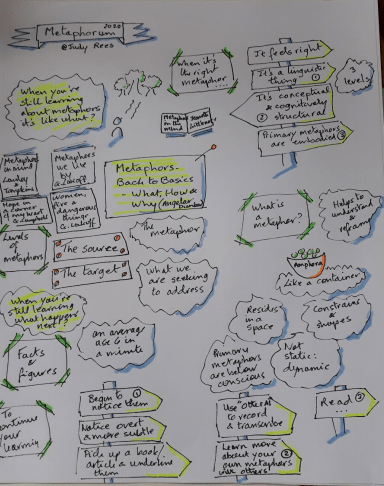 Metaphorum 2020
@Judy Rees
When you're
still learning
about metaphors
it's like what?
when it's
the right
metaphor
...
It feels right
It's a linguistic
thing ①
It's conceptual
& cognitively
② structural
Primary metaphors
are embodied ③
3
levels
Metaphors
in mind
Lawley
Tompkins
Metaphors
we live
by
G. Lakoff
Metaphor
in the
mind
Jeannette
Littlemore
Women,
fire &
dangerous
things
G. Lakoff
Metaphors-
Back to Basics
- What, How &
Why
The
metaphor
Levels of
metaphors
The source
The target
What we
are seeking
to address
What is
a metaphor?
Helps to
understand
& reframe
Amphora
Like a container
Resides
in a
space
Constrains
&
shapes
Primary
metaphors
are below
conscious
Not
static:
dynamic
When you're
still learning
what happens
next?
Facts
&
figures
an average
age 6 in
a minute
To
continue
your
learning
Begin to ①
notice them
Notice overt
& more subtle
Pick up a book/
article & underline
them
Use "otter AI"
to record
& transcribe
Learn more
about your ②
own metaphors
use others!
Read ③
...